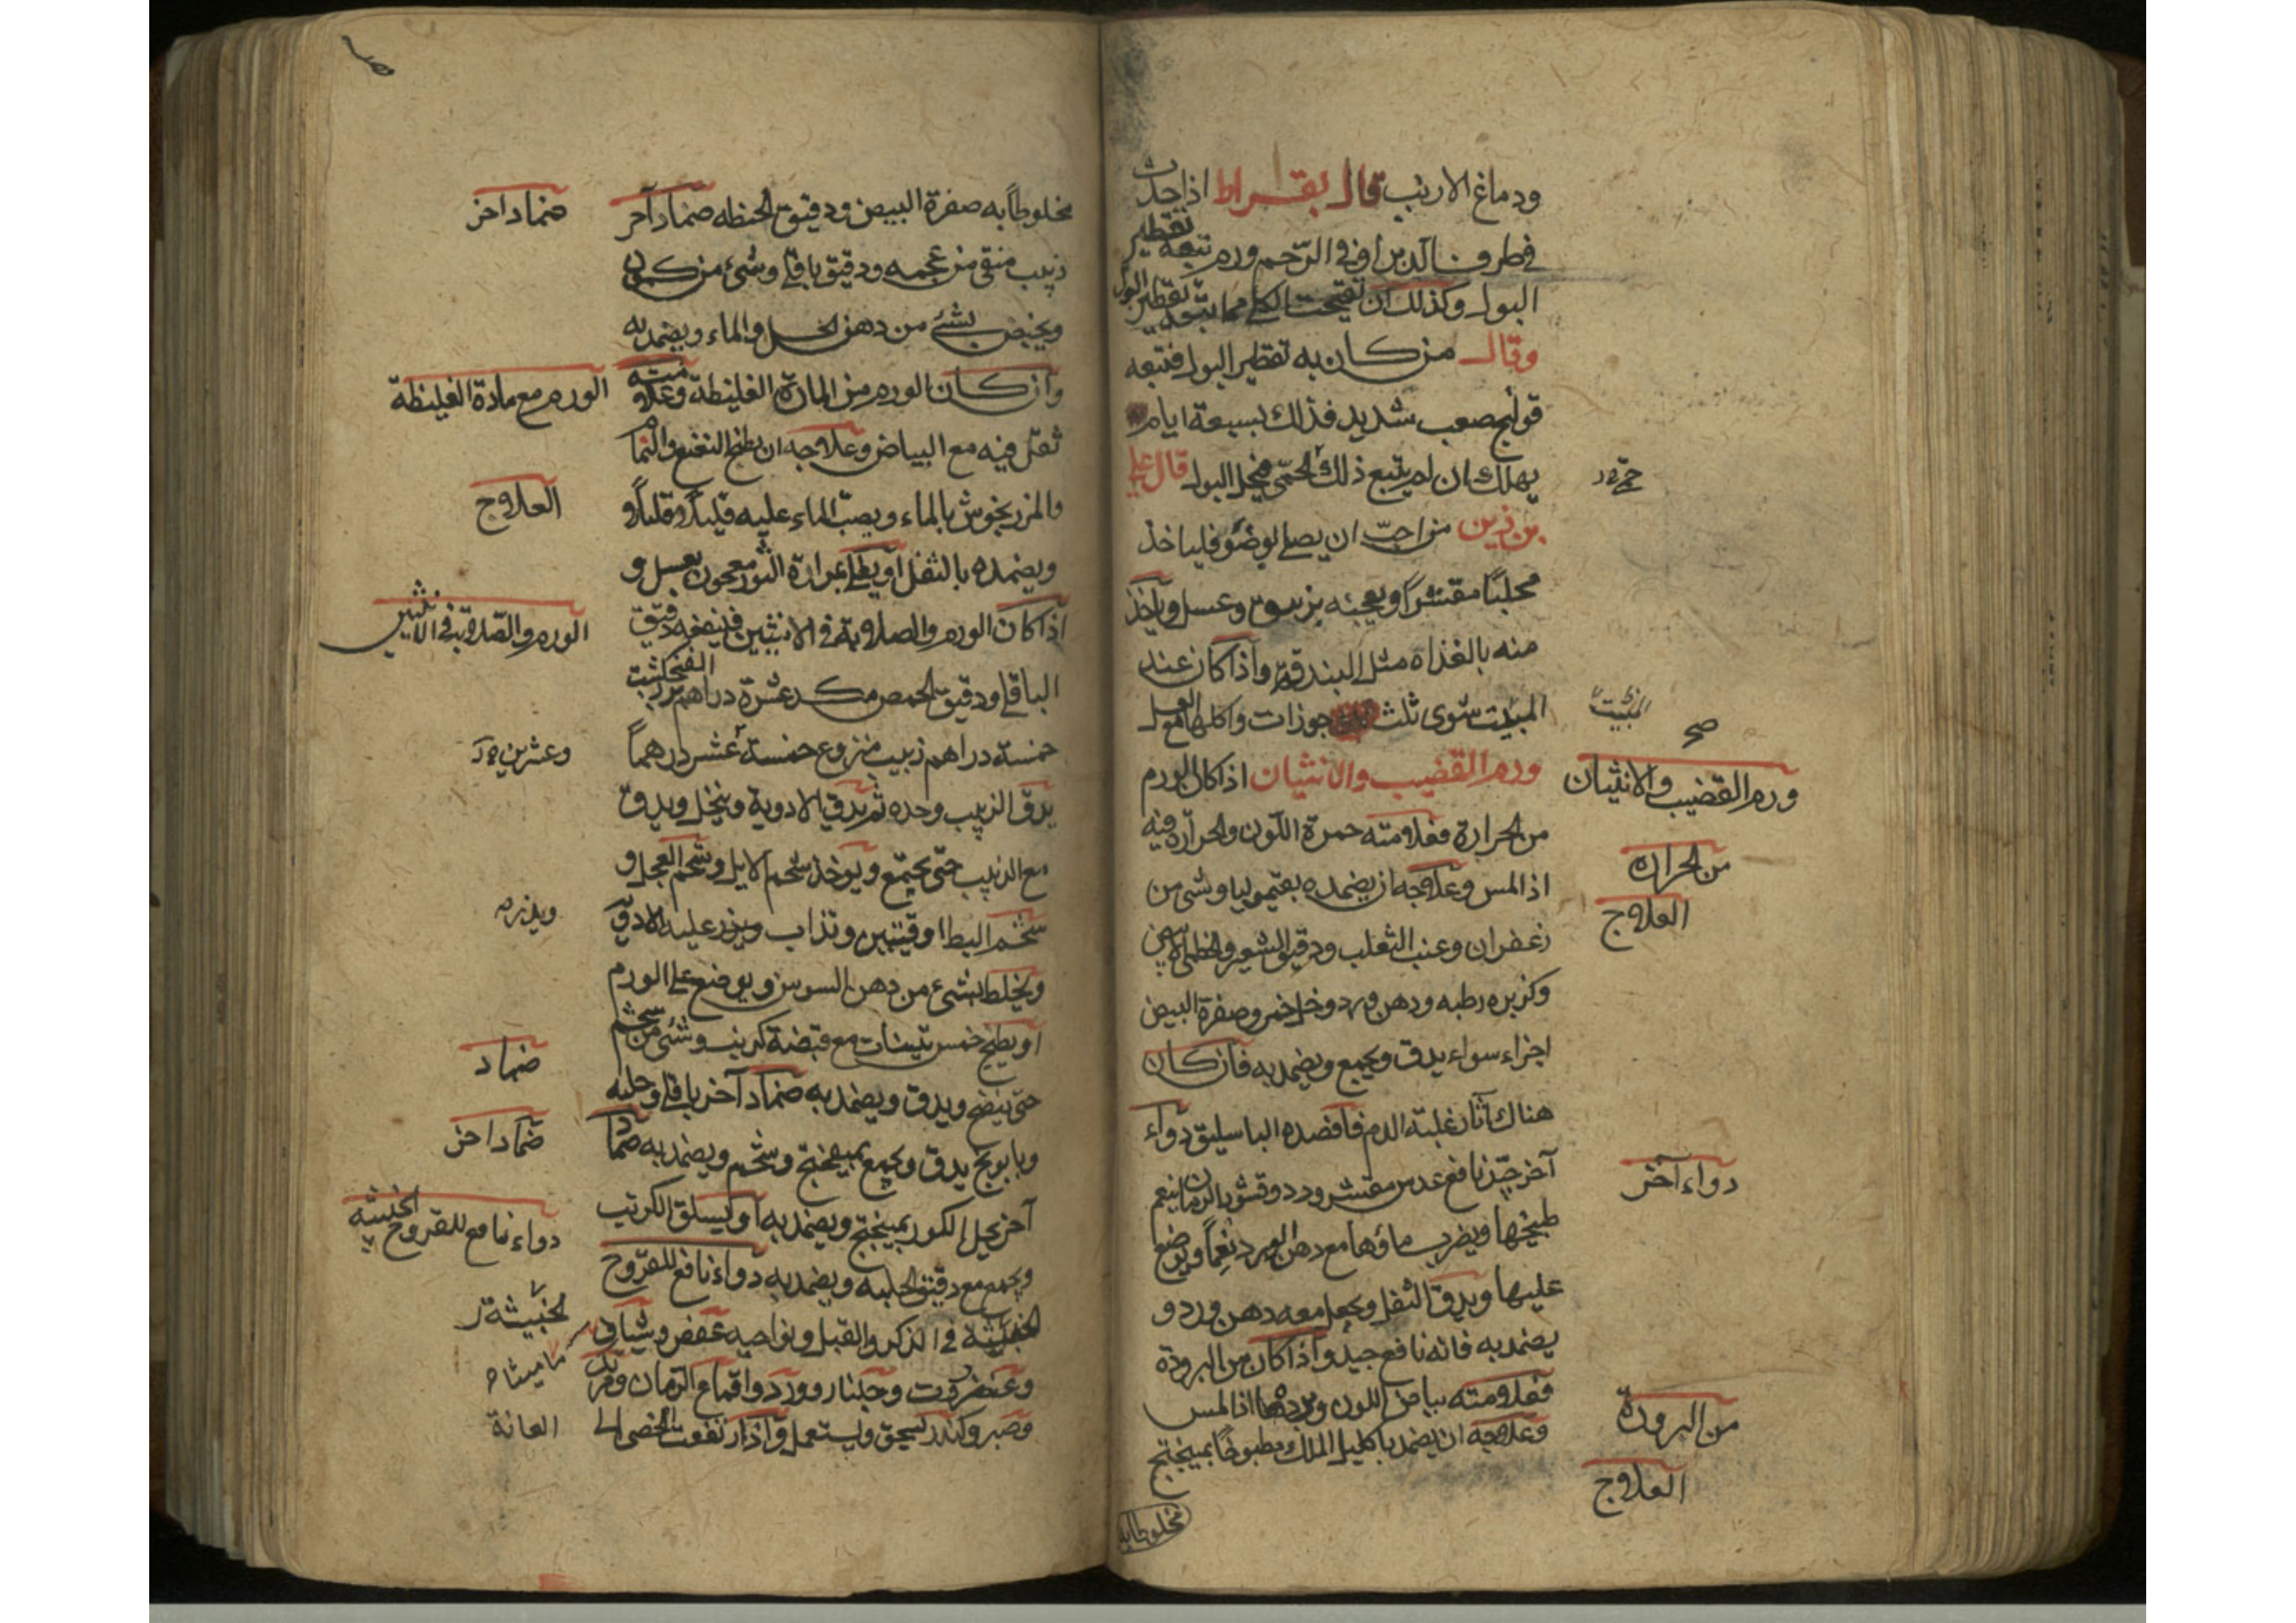 ودماغ الارنب قال بقراط اذا حدث
في طرف الدبر او في الرحم ورم تتبعه تقطير
البول وكذلك ان تقيحت الكلى مما يتبعه تقطير البول
وقال من كان به تقطير البول فتبعه
قولنج صعب شديد فذاك لسبعة ايام
يهلك ان لم يتبع ذلك الحمى فيحل البول قال علي
بن زين من احب ان يصلى لوضوء فلياخذ
محلبًا مقشرًا ويعجنه بزيبق وعسل وياخذ
منه بالغداة مثل البندقة واذا كان عند
المبيت شوى ثلث جوزات واكلها مع العسل
ورم القضيب والانثيان اذا كان الورم
من الحرارة فعلامته حمرة اللون والحرارة فيه
اذا لمس وعلاجه ان يضمده بقيموليا وشى من
زعفران وعنب الثعلب ودقيق الشعير والخطمى الابيض
وكزبره رطبه ودهن ورد وخل خمر وصفرة البيض
اجزاء سواء يدق ويجمع ويضمد به فان كان
هناك آثار غلبة الدم فافصده الباسليق دواء
آخر جيد نافع عدس مقشر وورد وقشور الرمان ينعم
طبخها ويضرب ماؤها مع دهن الورد نعمًا ويوضع
عليها ويدق الثفل ويجعل معه دهن ورد و
يضمد به فانه نافع جيد واذا كان من البرودة
فعلامته بياض اللون وبردها اذا لمس
وعلاجه ان يضمد باكليل الملك مطبوخًا بميبختج
مخلوطًا به
المبيت
صح
ورم القضيب والانثيان
من الحرارة
العلاج
دواء آخر
من البرودة
العلاج
مخلوطًا به صفرة البيض ودقيق الحنطه ضماد آخر
زبيب منقى من عجمه ودقيق باقلى وشئ من كمون
ويخبص بشئ من دهن الخل والماء ويضمد به
وان كان الورم من المادة الغليظة وعلامته
ثقل فيه مع البياض وعلاجه ان يطبخ النعنع والنمام
والمرزنجوش بالماء ويصب الماء عليه قليلًا قليلًا و
ويضمده بالثفل او يطلى بمرارة الثور معجون بعسل و
اذا كان الورم والصلابة في الانثيين فينفعه دقيق
الباقلى ودقيق الحمص مكد عشرة دراهم بزر الفنجنكشت
خمسة دراهم زبيب منزوع خمسة عشر درهماً
يدق الزبيب وحده ثم يدق الادوية وينخل ويدق
مع الزبيب حتى يجتمع ويوخذ شحم الايل وشحم العجل و
شحم البط اوقيتين وتذاب ويذر عليه الادوية
ويخلط بشئ من دهن السوسن ويوضع على الورم
او يطبخ خمس تينات مع قبضة كرنب وشئ من شحم
حتى ينضج ويدق ويضمد به ضماد آخر باقلى وحلبه
وبابونج يدق ويجمع بميبختج وشحم ويضمد به ضماد
آخر يحل الكور بميبختج ويضمد به او يسلق الكرنب
ويجمع مع دقيق الحلبه ويضمد به دواء نافع للقروح
الخبيثة في الذكر والقبل ونواحيه عفص وشياف
وعنزروت وجلنار وورد واقماع الرمان ومر
وصبر وكندر يسحق ويستعمل واذا ارتفعت الخصى الى
ضماد اخر
الورم مع مادة الغليظة
العلاج
الورم والصلابة في الانثيين
وعشرين
ويذر
ضماد
ضماد اخر
دواء نافع للقروح الخبيثه
الخبيثة
ماميثا
العانة